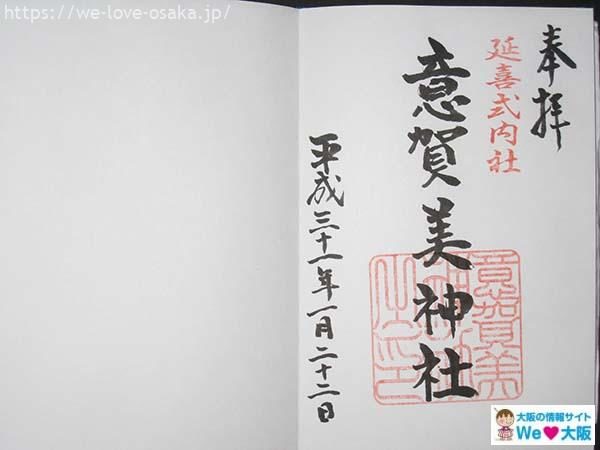 https://we-love-osaka.jp/
奉拝
延喜式内社
意賀美神社
平成三十一年一月二十二日
意賀美
大阪の情報サイト
We♥大阪